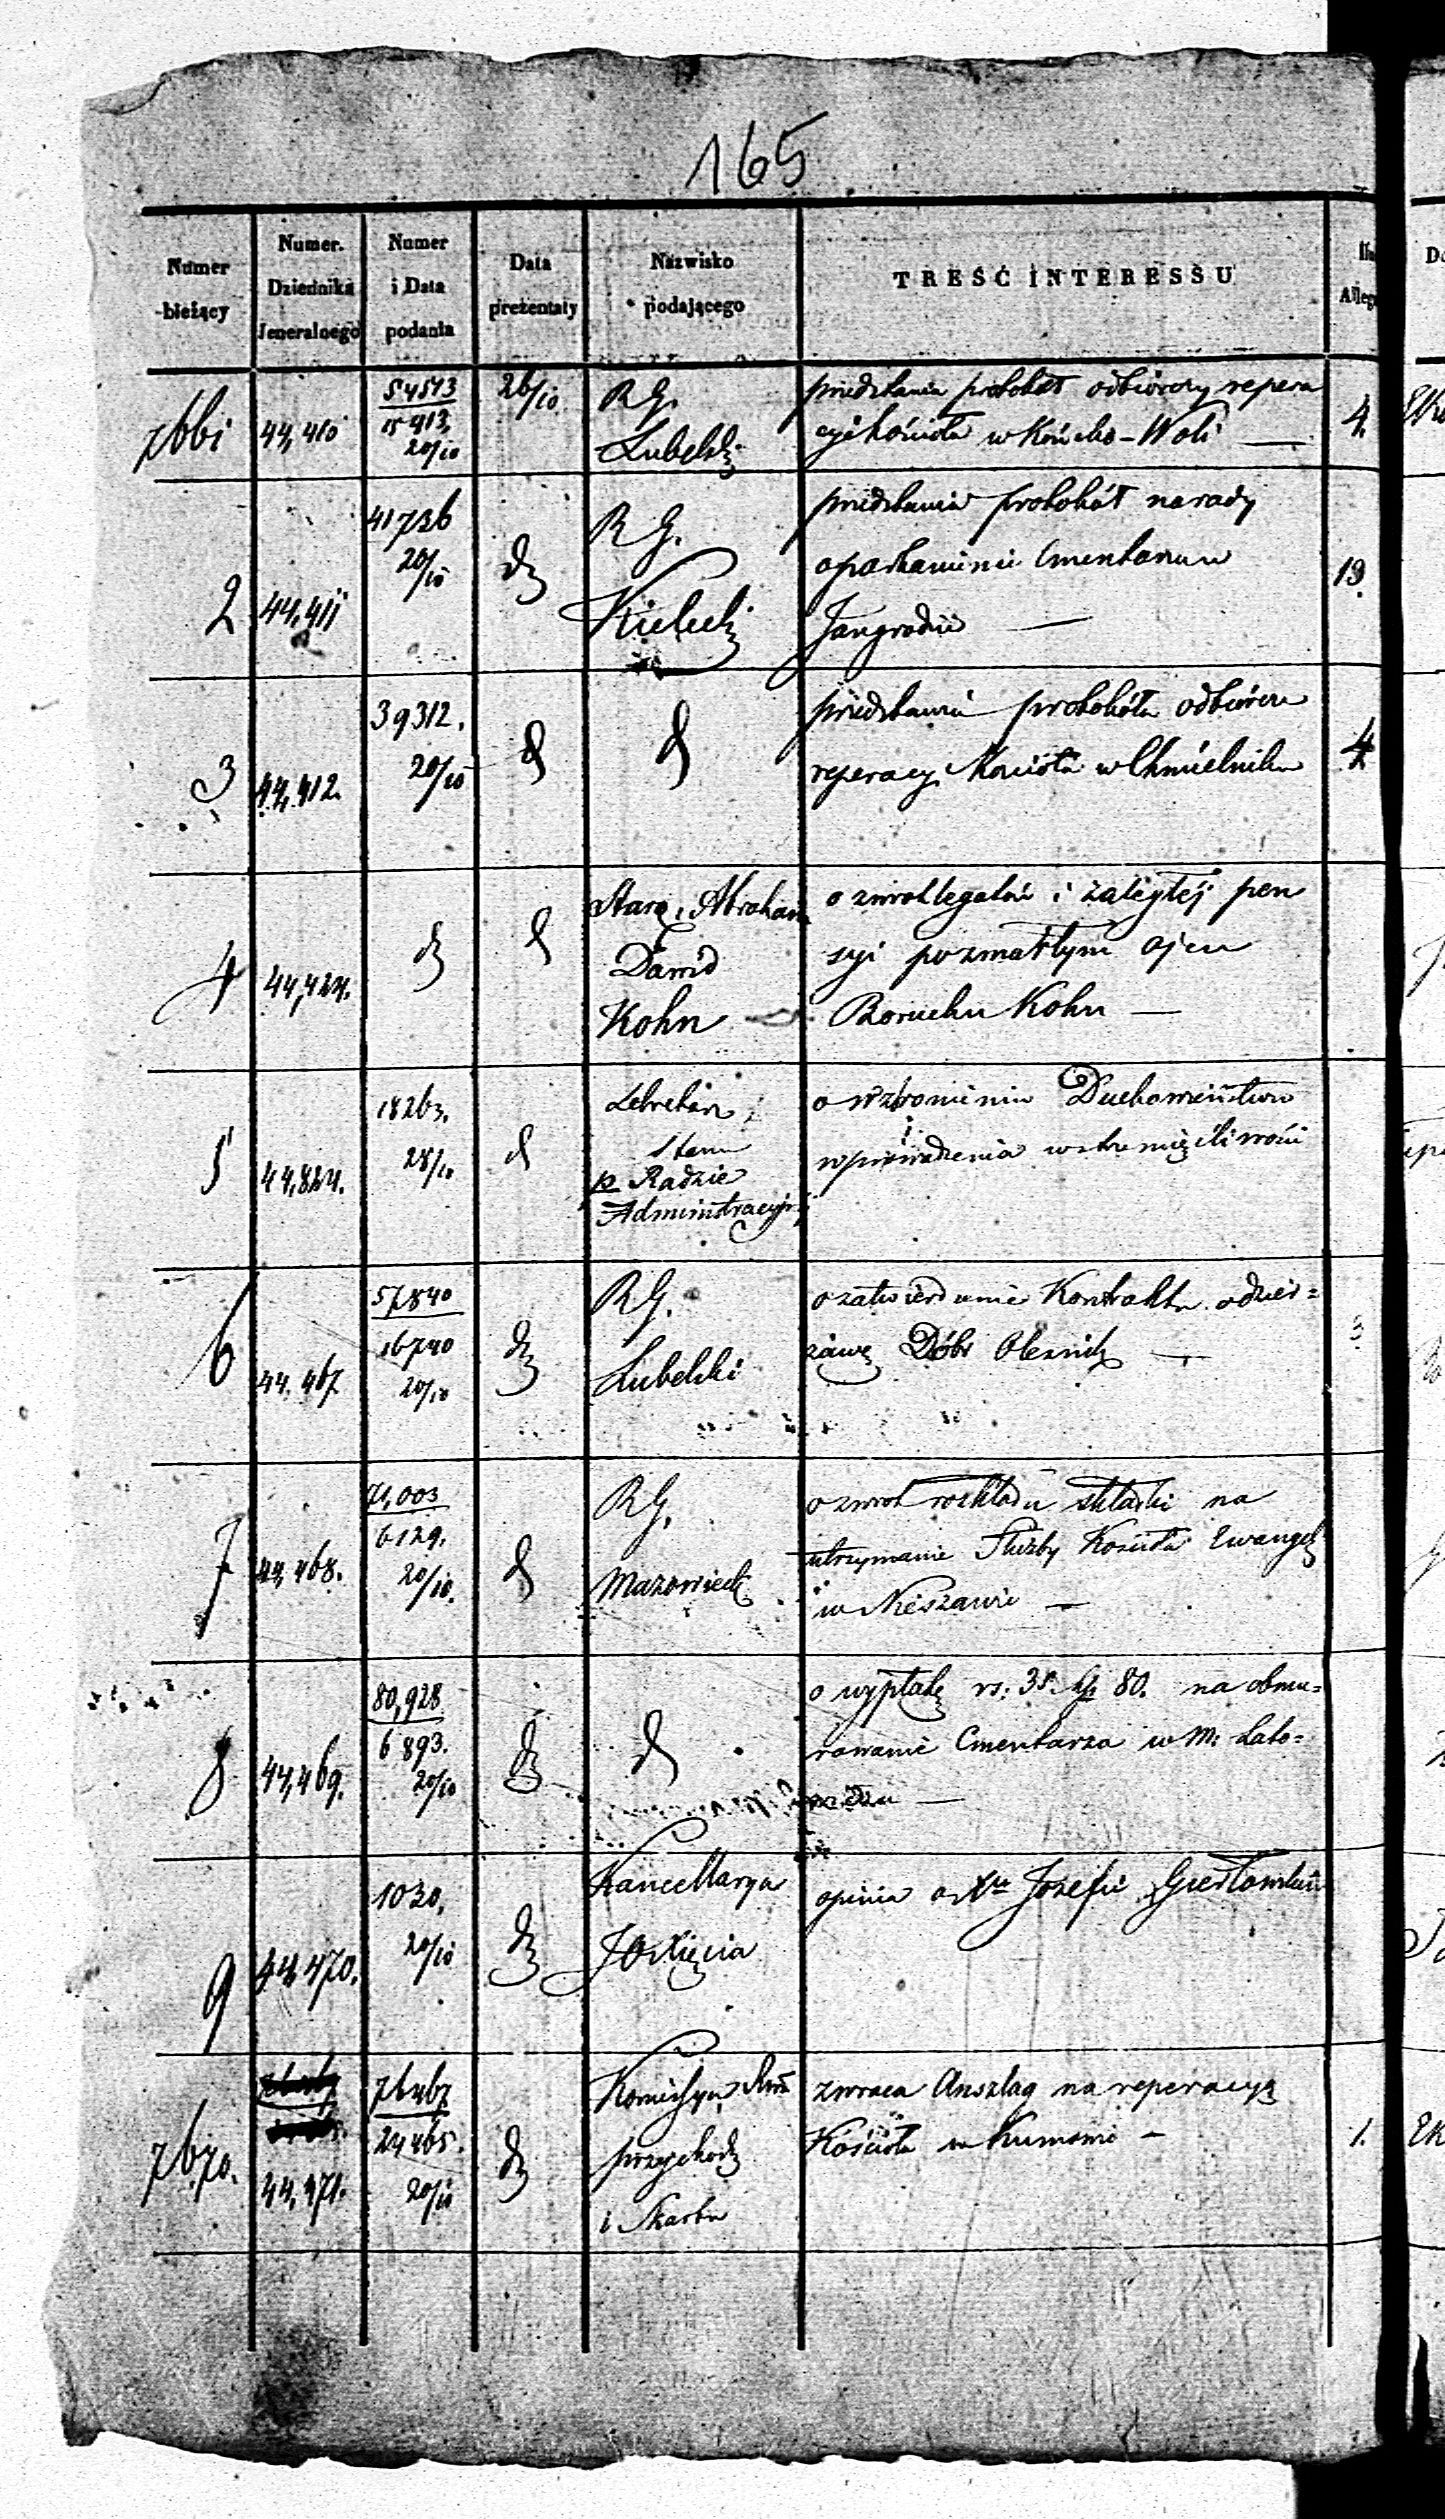 165
Numer bieżący
Numer. Dziennika Jeneralnego
Numer i Data podania
Data prezentaty
Nazwisko podającego
TREŚĆ INTERESSU
Alleg
7661
44,410
54513
15413.
20/10
26/10
R.G.
Lubelski
przedstawia protokół odbiorczy repera
cyi kościoła w Końsko-Woli —
4.
2
44,411
41736
20/10
R G.
Kielecki
przedstawia protokół narady
o parkanienie Cmentarza w
Jangrodzie —
19.
3
44,412.
39312.
20/10
przedstawia protokóła odbiorcze
reperacyi Kościoła w Chmielniku
4
4
44,424.
Abraham
Dawid
Kohn
o zwrot legatów i zaległej pen
syi po zmarłym ojcu
Boruchu Kohn —
5
44,824.
18263.
28/10
Sekretarz
Stanu
p Radzie
Administracyjnej
o wzbronieniu Duchowieństwu
wprowadzenia wstrzemięźliwości
6
44.467
57840
16740
20/10
R G.
Lubelski
o zatwierdzenie Kontraktu o dzier=
żawę Dóbr Olesniki —
3
7
44,468.
71,003
6129.
20/10.
R G.
Mazowiecki
o zwrot rozkładu składki na
utrzymanie Służby Kościoła Ewangel
w Nieszawie —
8
44,469.
80,928
6893.
20/10
o wypłatę rs: 35 kp 80. na obmu=
rowanie Cmentarza w M: Lato=
wiczu —
9
44,470.
1030.
20/10
Kancellarya
JO Xięcia
opinia o Xu Józefie
7670.
44,471.
76467
24465.
20/10
Komissya Rzą
przychod
i Skarbu
zwraca Anszlag na reperacyą
Kościoła w Kumowie —
1.